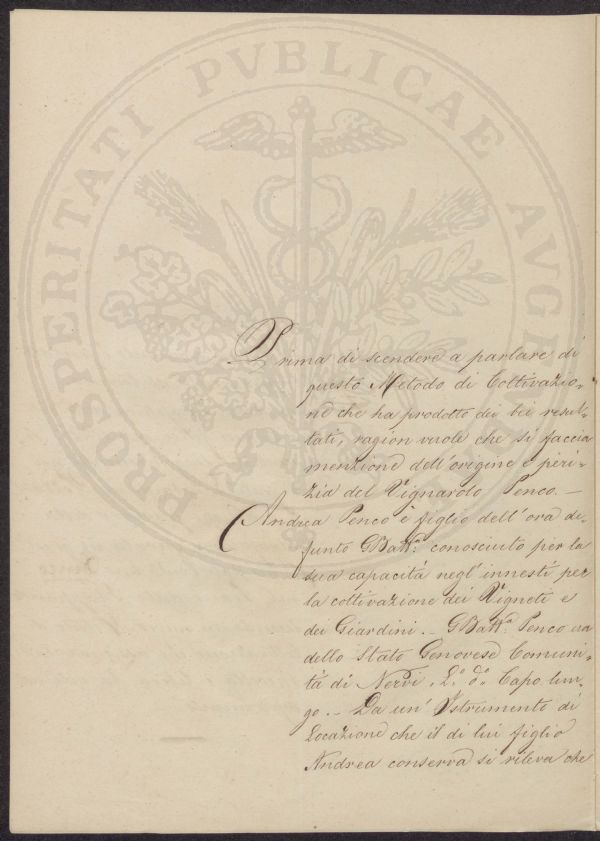 PROSPERITATI PVBLICAE AVGE
Prima di scendere a parlare di
questo Metodo di Coltivazio-
ne che ha prodotto dei bei resul-
tati, ragion vuole che si faccia
menzione dell'origine e peri-
zia del Vignarolo Penco. —
Andrea Penco è figlio dell'ora de-
funto GBatta. conosciuto per la
sua capacità negl'innesti per
la coltivazione dei Vigneti e
dei Giardini. — GBatta. Penco era
dello Stato Genovese Comuni-
tà di Nervi, L.o d.o Capo lun-
go. — Da un' Istrumento di
Locazione che il di lui figlio
Andrea conserva si rileva che